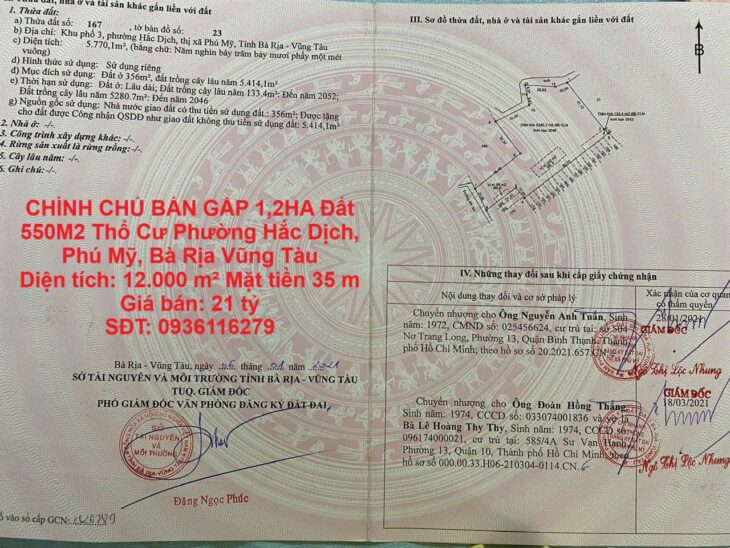 1. Thửa đất:
a) Thửa đất số: 167 , tờ bản đồ số: 23
b) Địa chỉ: Khu phố 3, phường Hắc Dịch, thị xã Phú Mỹ, Tỉnh Bà Rịa - Vũng Tàu
c) Diện tích: 5.770,1m², (bằng chữ: Năm nghìn bảy trăm bảy mươi phẩy một mét vuông)
d) Hình thức sử dụng: Sử dụng riêng
đ) Mục đích sử dụng: Đất ở 356m², đất trồng cây lâu năm 5.414,1m²
e) Thời hạn sử dụng: Đất ở: Lâu dài; Đất trồng cây lâu năm 133.4m²: Đến năm 2052;
Đất trồng cây lâu năm 5280.7m²: Đến năm 2046
g) Nguồn gốc sử dụng: Nhà nước giao đất có thu tiền sử dụng đất: 356m²; Được tặng
cho đất được Công nhận QSDĐ như giao đất không thu tiền sử dụng đất: 5.414,1m²
2. Nhà ở: -/-
3. Công trình xây dựng khác: -/-
4. Rừng sản xuất là rừng trồng: -/-
5. Cây lâu năm: -/-
6. Ghi chú: -/-
CHÍNH CHỦ BÁN GẤP 1,2HA Đất
550M2 Thổ Cư Phường Hắc Dịch,
Phú Mỹ, Bà Rịa Vũng Tàu
Diện tích: 12.000 m² Mặt tiền 35 m
Giá bán: 21 tỷ
SĐT: 0936116279
Bà Rịa - Vũng Tàu, ngày 06 tháng 01 2021
SỞ TÀI NGUYÊN VÀ MÔI TRƯỜNG TỈNH BÀ RỊA - VŨNG TÀU
TUQ. GIÁM ĐỐC
PHÓ GIÁM ĐỐC VĂN PHÒNG ĐĂNG KÝ ĐẤT ĐAI
SỞ
TÀI NGUYÊN
VÀ
MÔI TRƯỜNG
Đặng Ngọc Phúc
vào sổ cấp GCN:
III. Sơ đồ thửa đất, nhà ở và tài sản khác gắn liền với đất
B
IV. Những thay đổi sau khi cấp giấy chứng nhận
Nội dung thay đổi và cơ sở pháp lý
Xác nhận của cơ quan
có thẩm quyền
Chuyển nhượng cho Ông Nguyễn Anh Tuấn, Sinh
năm: 1972, CMND số: 025456624, cư trú tại: số 304
Nơ Trang Long, Phường 13, Quận Bình Thạnh, Thành
phố Hồ Chí Minh; theo hồ sơ số 20.2021.657.CN
28/01/2021
GIÁM ĐỐC
Ngô Thị Lộc Nhung
Chuyển nhượng cho Ông Đoàn Hồng Thắng,
Sinh năm: 1974, CCCD số: 033074001836 và vợ là
Bà Lê Hoàng Thy Thy, Sinh năm: 1974, CCCD số:
096174000021, cư trú tại: 585/4A Sư Vạn Hạnh,
Phường 13, Quận 10, Thành phố Hồ Chí Minh, theo
hồ sơ số 000.00.33.H06-210304-0114.CN
GIÁM ĐỐC
18/03/2021
Ngô Thị Lộc Nhung